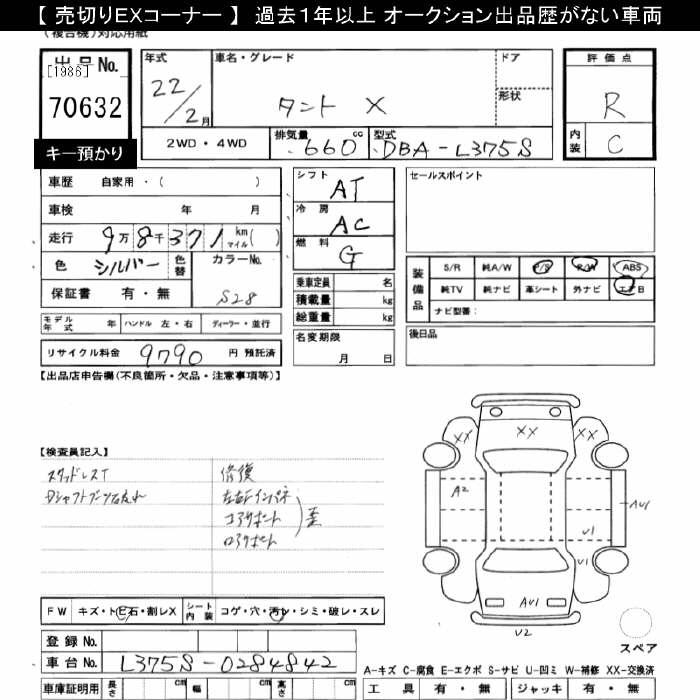 【 売切りEXコーナー 】 過去１年以上 オークション出品歴がない車両
(複合紙)対応用紙
出品No.
[1986]
70632
キー預かり
年式
22/2月
車名・グレード
タント X
ドア
形状
2WD・4WD
排気量
660
cc
型式
DBA-L375S
評価点
R
内装
C
車歴 自家用・( )
車検 年 月
走行 9万8千371 km マイル( )
色 シルバー 色替
カラーNo.
S28
保証書 有・無
シフト
AT
冷房
AC
燃料
G
乗車定員 名
積載量 kg
総重量 kg
名変期限
月 日
セールスポイント
装備品
S/R 純A/W P/S P/W ABS
純TV 純ナビ 革シート 外ナビ エアB
ナビ型番:
後日品
モデル年式 年 ハンドル 左・右 ディーラー・並行
リサイクル料金 9790 円 預託済
【出品店申告欄(不良箇所・欠品・注意事項等)】
【検査員記入】
スタッドレスT
Dシャフトブーツ左右切れ
修復
左右Fインパネ
コアサポート
ロアサポート
歪
XX
XX
XX
A2
AU1
U1
U1
AU1
U2
スペア
FW キズ・トビ石・割レX シート内装 コゲ・穴・汚レ・シミ・破レ・スレ
登録No.
車台No. L375S-0284842
車庫証明用 長さ cm 幅 cm 高さ cm
A-キズ C-腐食 E-エクボ S-サビ U-凹ミ W-補修 XX-交換済
工具 有・無 ジャッキ 有・無